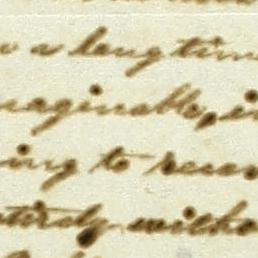 a long time
maginable, in
ing to recov
ntirely witho